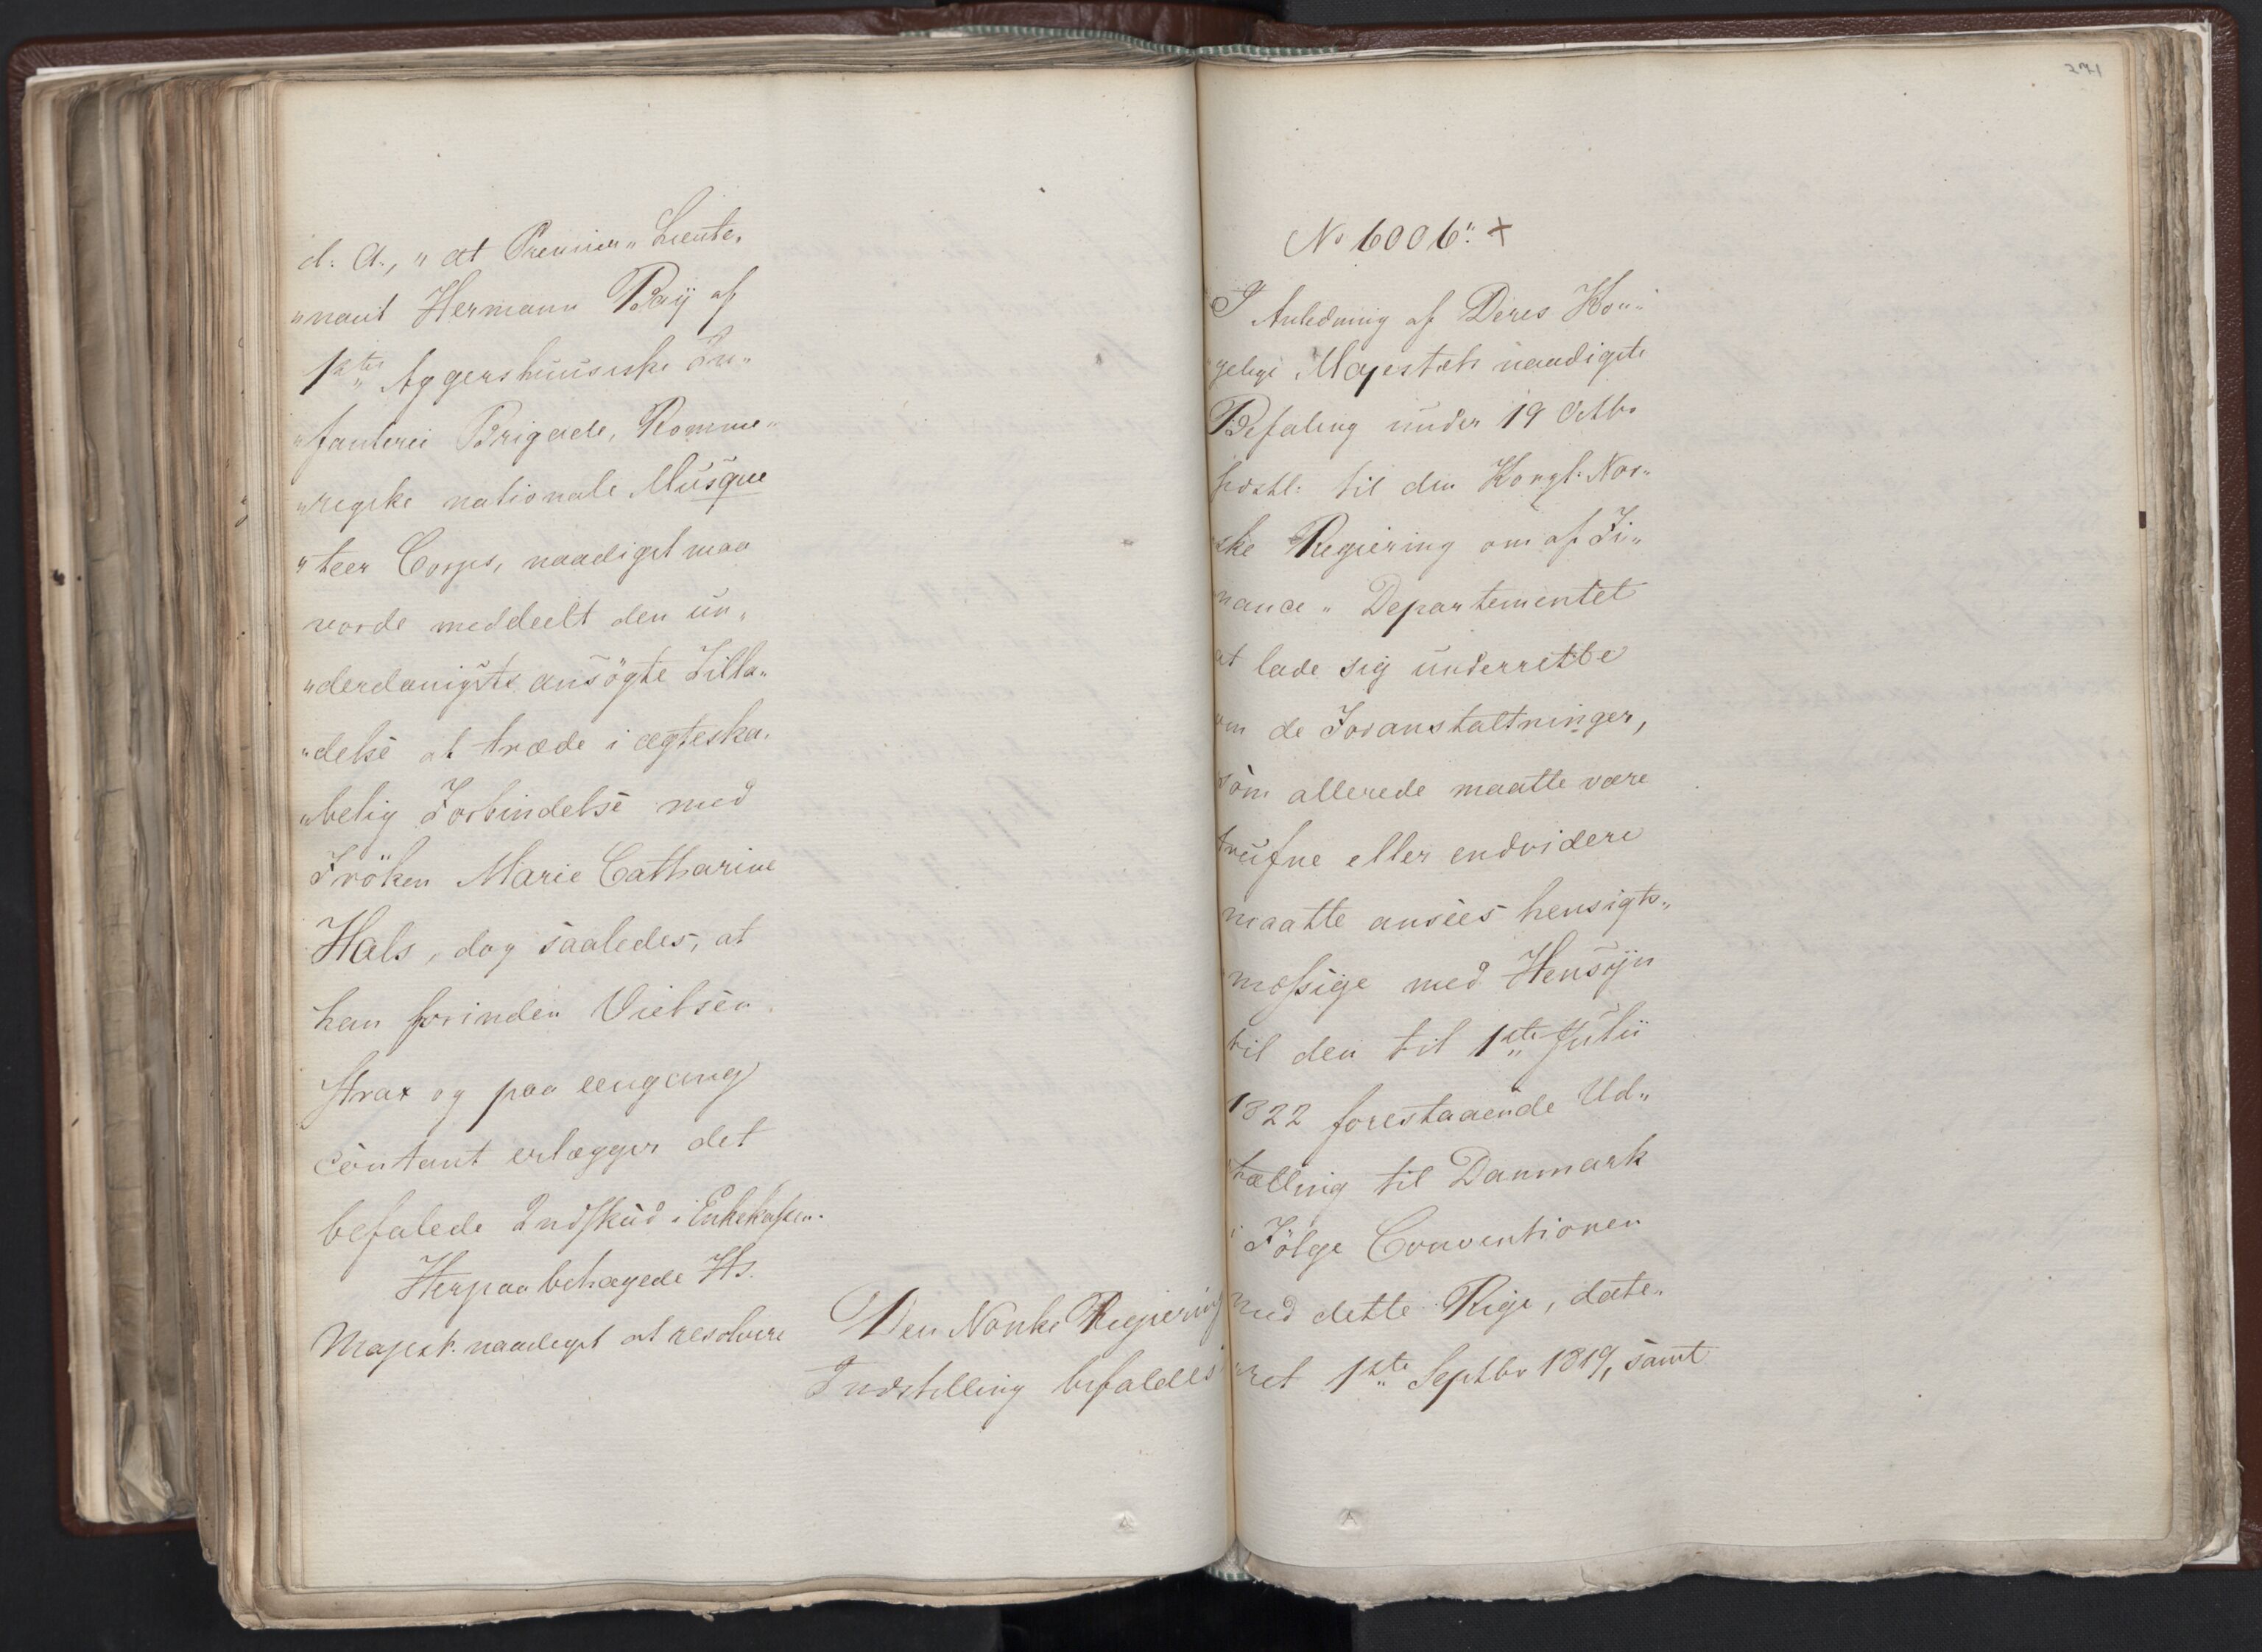 d: A., „ at Premier „ Lieute„
„nant Hermann Baÿ af
1ste Aggershuusiske In„
„fanterie Brigade, Romme„
„rigske nationale Musque
„teer Corps, naadigst maa
vorde meddeelt den un„
„derdanigste ansögte Tilla„
„delse at træde i ægteska„
„belig Forbindelse med
Fröken Marie Catharine
Hals, dog saaledes, at
han forinden Vielsen
strax og paa eengang
contant erlægger det
befalede Indskud i Enkekassen.
Herpaa behagede Hs.
Majest. naadigst at resolvere
Den Norske Regiering
Indstilling befaldes
271
No 6006. +
I Anledning af Deres Kon„
„gelige Majestæts naadigste
Befaling under 19 Octbr
sidstl: til den Kongl: Nor„
„ske Regiering om af Fi„
nance „ Departementet
at lade sig underrette
om de Foranstaltninger,
som allerede maatte være
trufne eller endvidere
maatte ansees hensigts„
mæssige med Hensÿn
til den til 1ste Julii
1822 forestaaende Ud„
tælling til Danmark
i Fölge Conventionen
med dette Rige, date„
„ret 1ste Septbr 1819, samt